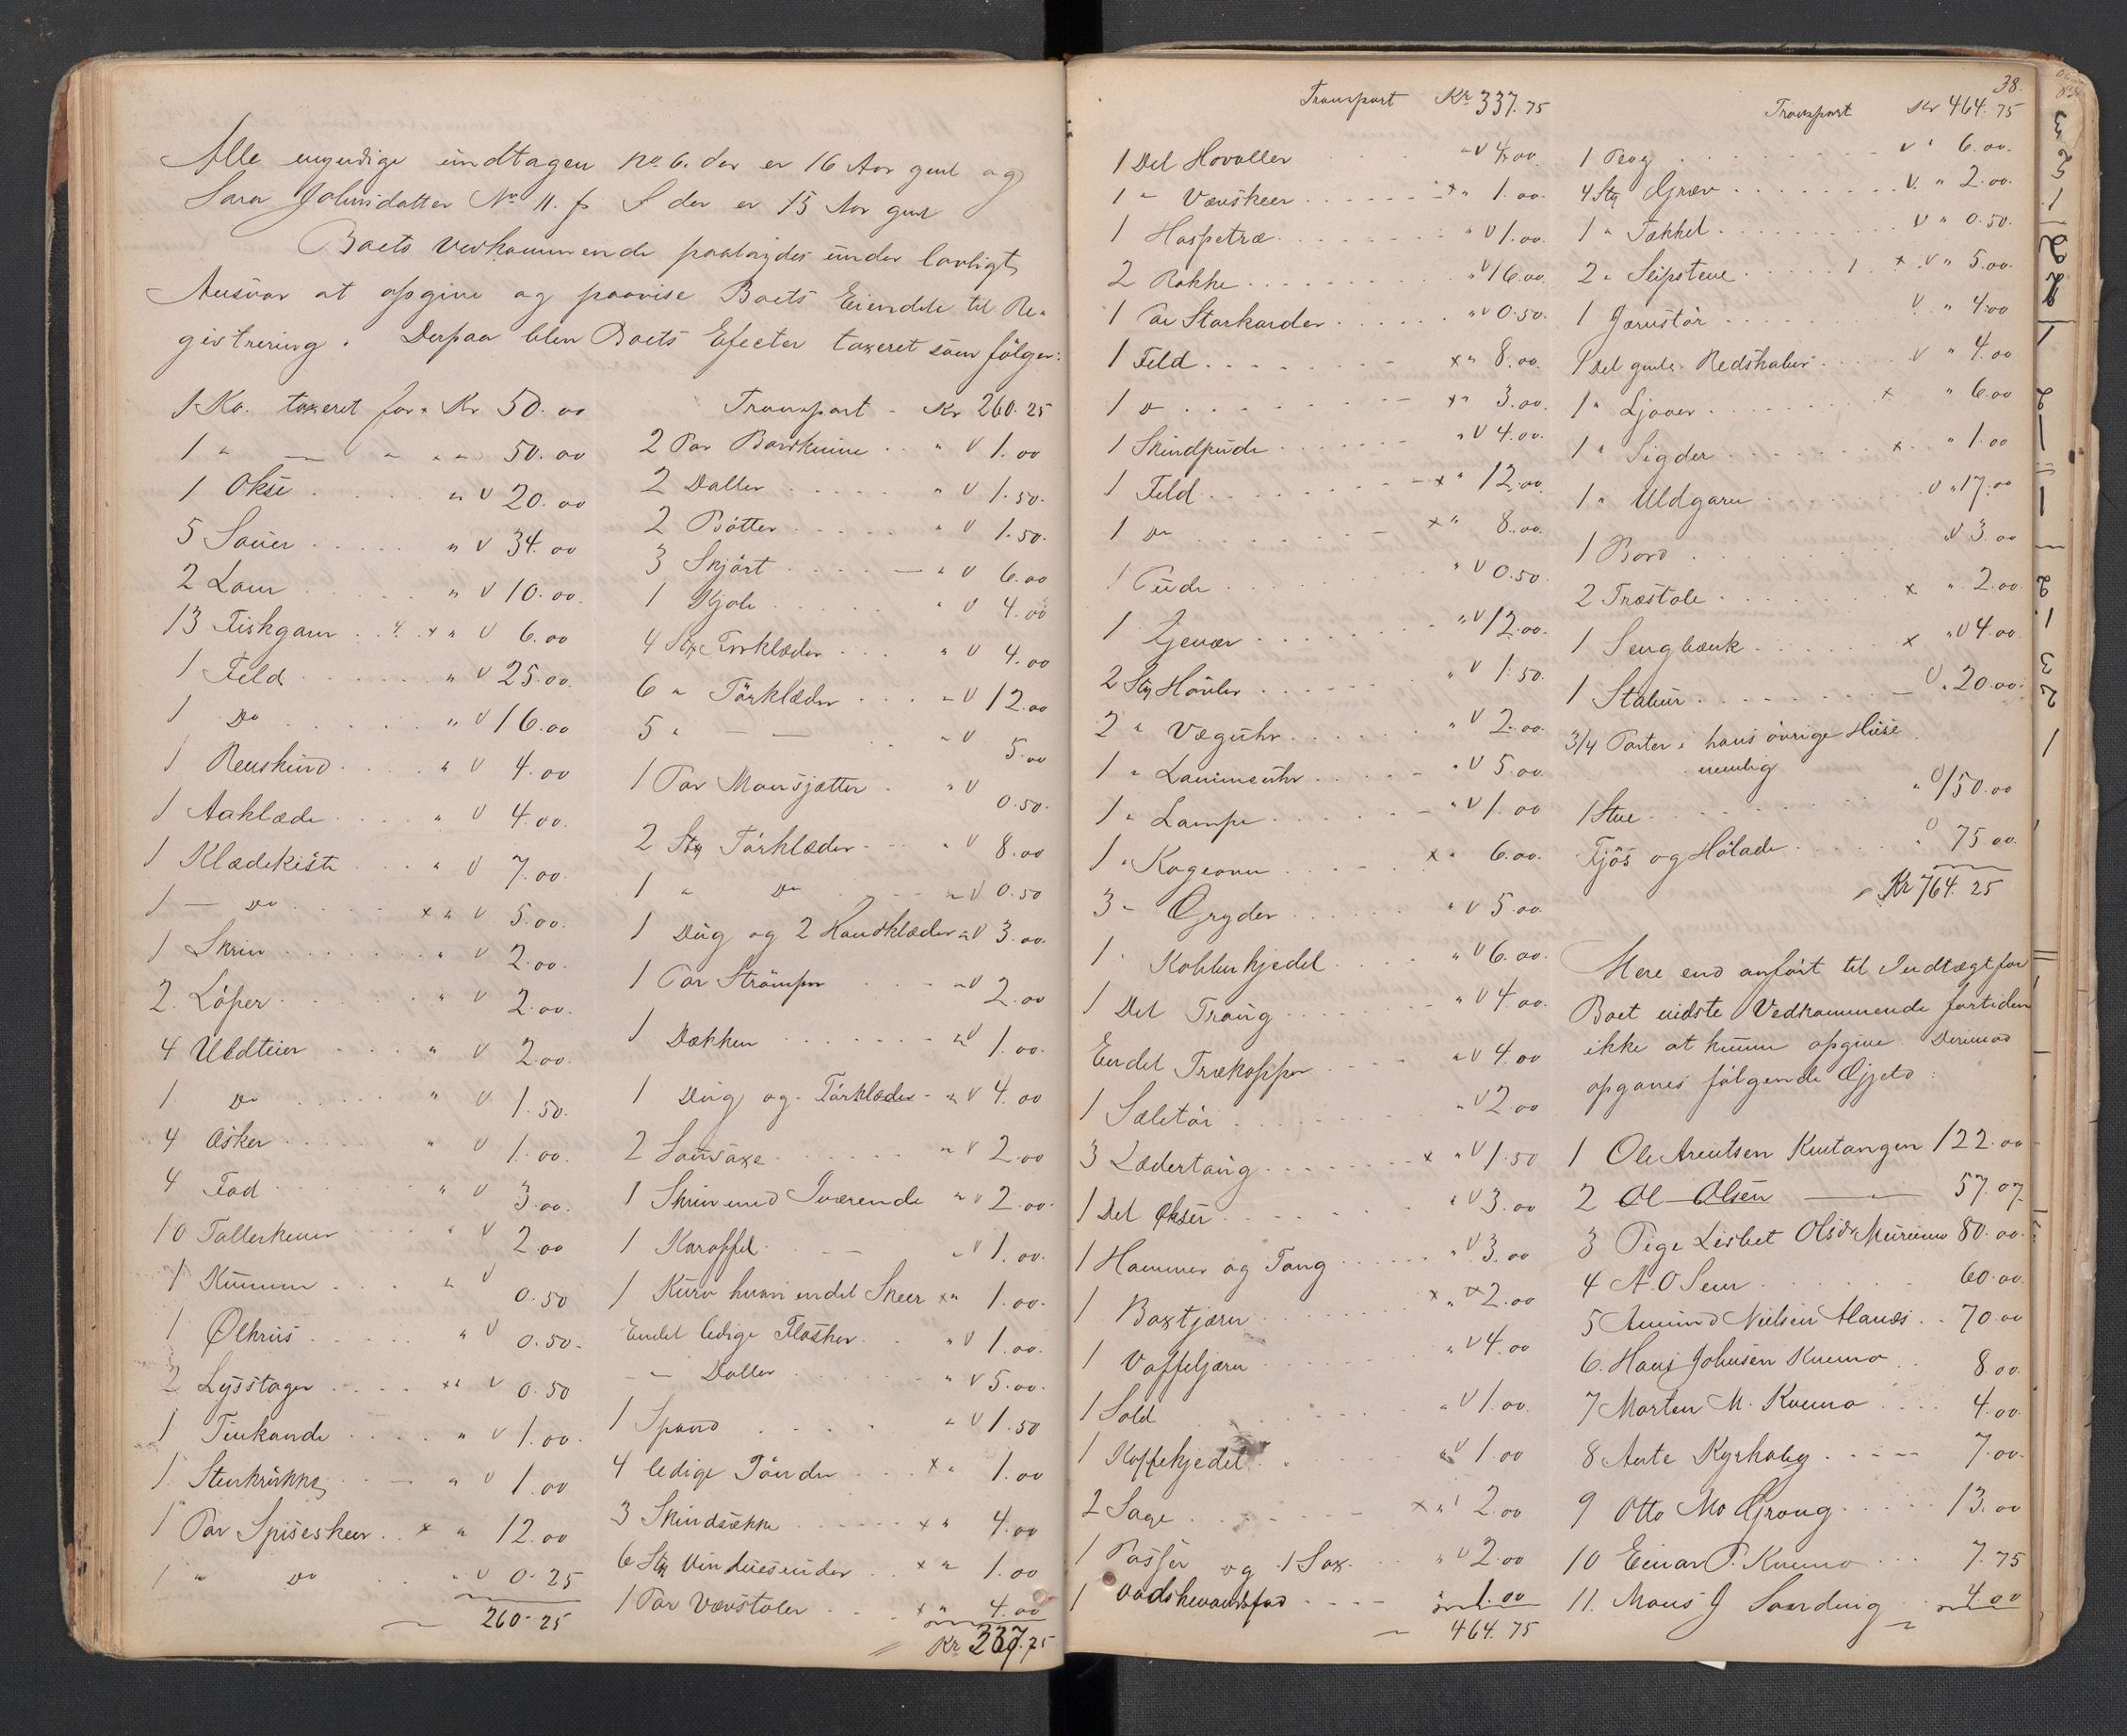 Alle umyndige undtagen No 6. der er 16 Aar gml og
Sara Johnsdatter No 11. f. S der er 15 Aar gml
Boets Vedkommende paalagdes under lovligt
Ansvar at opgive og paavise Boets Eiendele til Re-
gistrering. Derpaa blev Boets Efecter taxeret som fölger:
1 Ko. taxeret for " Kr 50.00
1 " — " " " 50.00
1 Okse " V 20.00
5 Sauer " V 34.00
2 Lam " V 10.00
13 Fiskgarn x " V 6.00
1 Feld " V 25.00
1 Do " V 16.00
1 Renskind " V 4.00
1 Aaklæde " V 4.00
1 Klædekiste " V 7.00
1 — Do x " V 5.00
1 Skrin " V 2.00
2 Löper " V 2.00
4 Uldteier " V 2.00
1 Do " V 1.50
4 Æsker " V 1.00
4 Fad " V 3.00
10 Tallerkener " V 2.00
1 Kumme " V 0.50
1 Ølkrus " V 0.50
2 Lysstager x " V 0.50
1 Tinkande " V 1.00
1 Stenkrukke " V 1.00
1 Par Spiseskeer x " 12.00
1 " Do " V 0.25
260.25
Transport - Kr 260.25
2 Par Bordknive " V 1.00
2 Daller " V 1.50
2 Bötter " V 1.50
3 Skjört " V 6.00
1 Kjole " V 4.00
4 Stk Forklæder " V 4.00
6 " Törklæder " V 12.00
5 " — " V 5.00
1 Par Mansjetter " V 0.50
2 Stk Törklæder " V 8.00
1 " Do " V 0.50
1 Dug og 2 Handklæder " V 3.00
1 Par Strömper " V 2.00
1 Dækken " V 1.00
1 Dug og Törklæder " V 4.00
2 Sausaxe " V 2.00
1 Skrin med Iværende " V 2.00
1 Karaffel " V 1.00
1 Kurv hvori endel Skeer x " 1.00
Endel ledige Flasker " V 1.00
— Daller " V 5.00
1 Spand " V 1.50
4 ledige Tönder x " 1.00
3 Skindsække x " 4.00
6 Stk Vinduesruder x " 1.00
1 Par Vævstoler x " 4.00
Kr 337.75
38.
Transport Kr 337.75
1 Del Hovaller " V 4.00
1 " Vævskeer x " 1.00
1 Haspetræ " V 1.00
2 Rokke " V 16.00
1 Par Starkarder " V 0.50
1 Feld x " 8.00
1 Do x " 3.00
1 Skindpude " V 4.00
1 Feld x " 12.00
1 Do x " 8.00
1 Pude " V 0.50
1 Gjevær " V 12.00
2 Stk Hövler " V 1.50
2 " Væguhr " V 2.00
1 " Lommeuhr " V 5.00
1 " Lampe " V 1.00
1 " Kogeovn x " 6.00
3 " Gryder " V 5.00
1 " Kobberkjedel " V 6.00
1 Del Traug " V 4.00
Endel Trækopper " V 4.00
1 Sæletöi " V 2.00
3 Lædertaug x " V 1.50
1 Del Økser " V 3.00
1 Hammer og Tang " V 3.00
1 Baxtjærn x " 2.00
1 Vaffeljærn " V 4.00
1 Sold " V 1.00
1 Kaffekjedel " V 1.00
2 Sage x " 2.00
1 Passer og 1 Sax " V 2.00
1 Vadskevandsfad 1.00
464.75
Transport Kr 464.75
1 Plog V " 6.00
4 Stk Græv V " 2.00
1 " Tækkel V " 0.50
2 " Slipstene x V " 5.00
1 Jærnstör V " 4.00
1 Del gamle Redskaber V " 4.00
1 " Ljaaer x " 6.00
1 " Sigder x " 1.00
1 " Uldgarn V " 17.00
1 Bord " V 3.00
2 Træstole x " 2.00
1 Sengbænk x " V 4.00
1 Stabur V " 20.00
3/4 Parter i hans övrige Huse
nemlig
1 Stue " V 150.00
Fjös og Hölade V " 75.00
Kr 764.25
Mere end anfört til Indtægt for
Boet vidste Vedkommende fortiden
ikke at kunne opgive. Derimod
opgaves fölgende Gjæld:
1 Ole Arentsen Kvetangen 122.00
2 Ol Olsen — 57.07
3 Pige Lisbet Olsdr Murumo 80.00
4 A. O Sem 60.00
5 Amund Nielsen Alanæs 70.00
6. Hans Johnsen Kvemo 8.00
7 Morten M. Kvemo 4.00
8 Ante Kyrkaby 7.00
9 Otto Mo Grong 13.00
10 Einar P. Kvemo 7.75
11. Mons J Sanding 4.00